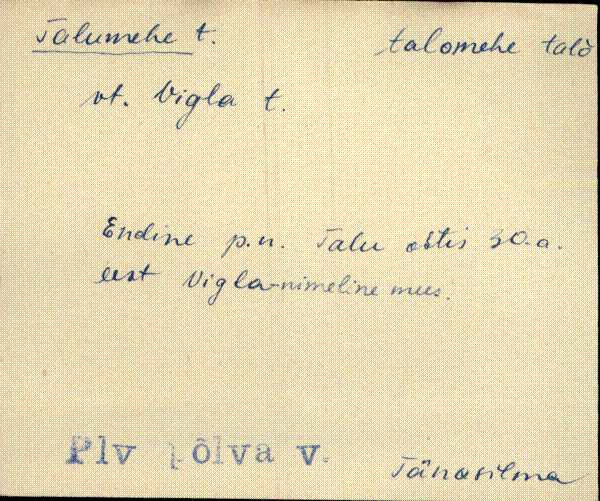 Talumehe t. talomehe talo
vt. Vigla t.
Endine p.n. Talu ostis 30.a.
eest Vigla-nimeline mees.
Plv Põlva v. Tänasilma